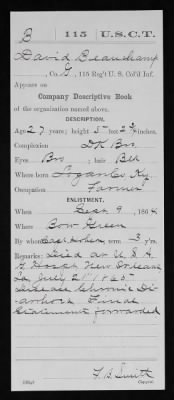 B 115 U.S.C.T.
David Beauchamp
, Co. G, 115 Reg't U. S. Col'd Inf.
Appears on
Company Descriptive Book
of the organization named above.
DESCRIPTION.
Age 27 years; height 5 feet inches.
Complexion Dk Bro
Eyes Bro ; hair Blk
Where born Logan Co Ky
Occupation Farmer
ENLISTMENT.
When Sept 9 , 1864
Where Bow Green
By whom term 3 y'rs.
Remarks: Died at U S A
G Hosp New Orleans
La July 21 1865
Disease Chronic Di-
arrhoea Final
Statement forwarded
Copyist.